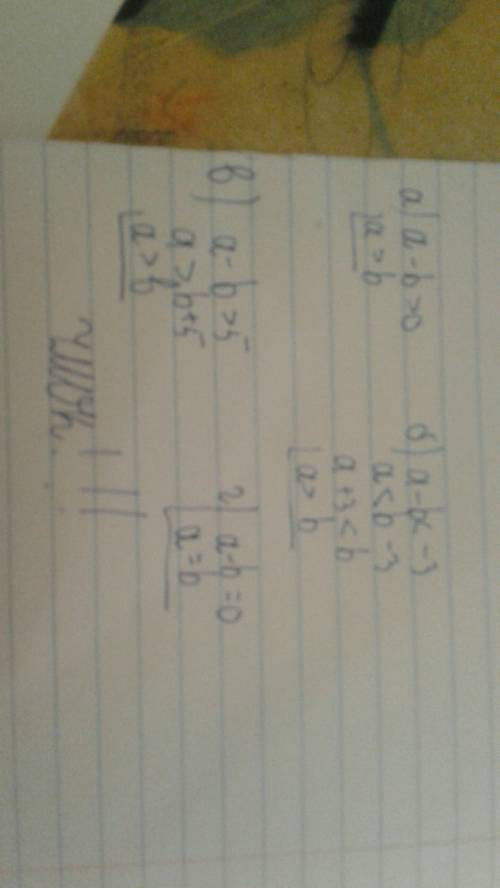 а) a - b > 0
a > b
б) a - b < -3
a < b - 3
a + 3 < b
a > b
в) a - b > 5
a > b + 5
a > b
г) a - b = 0
a = b